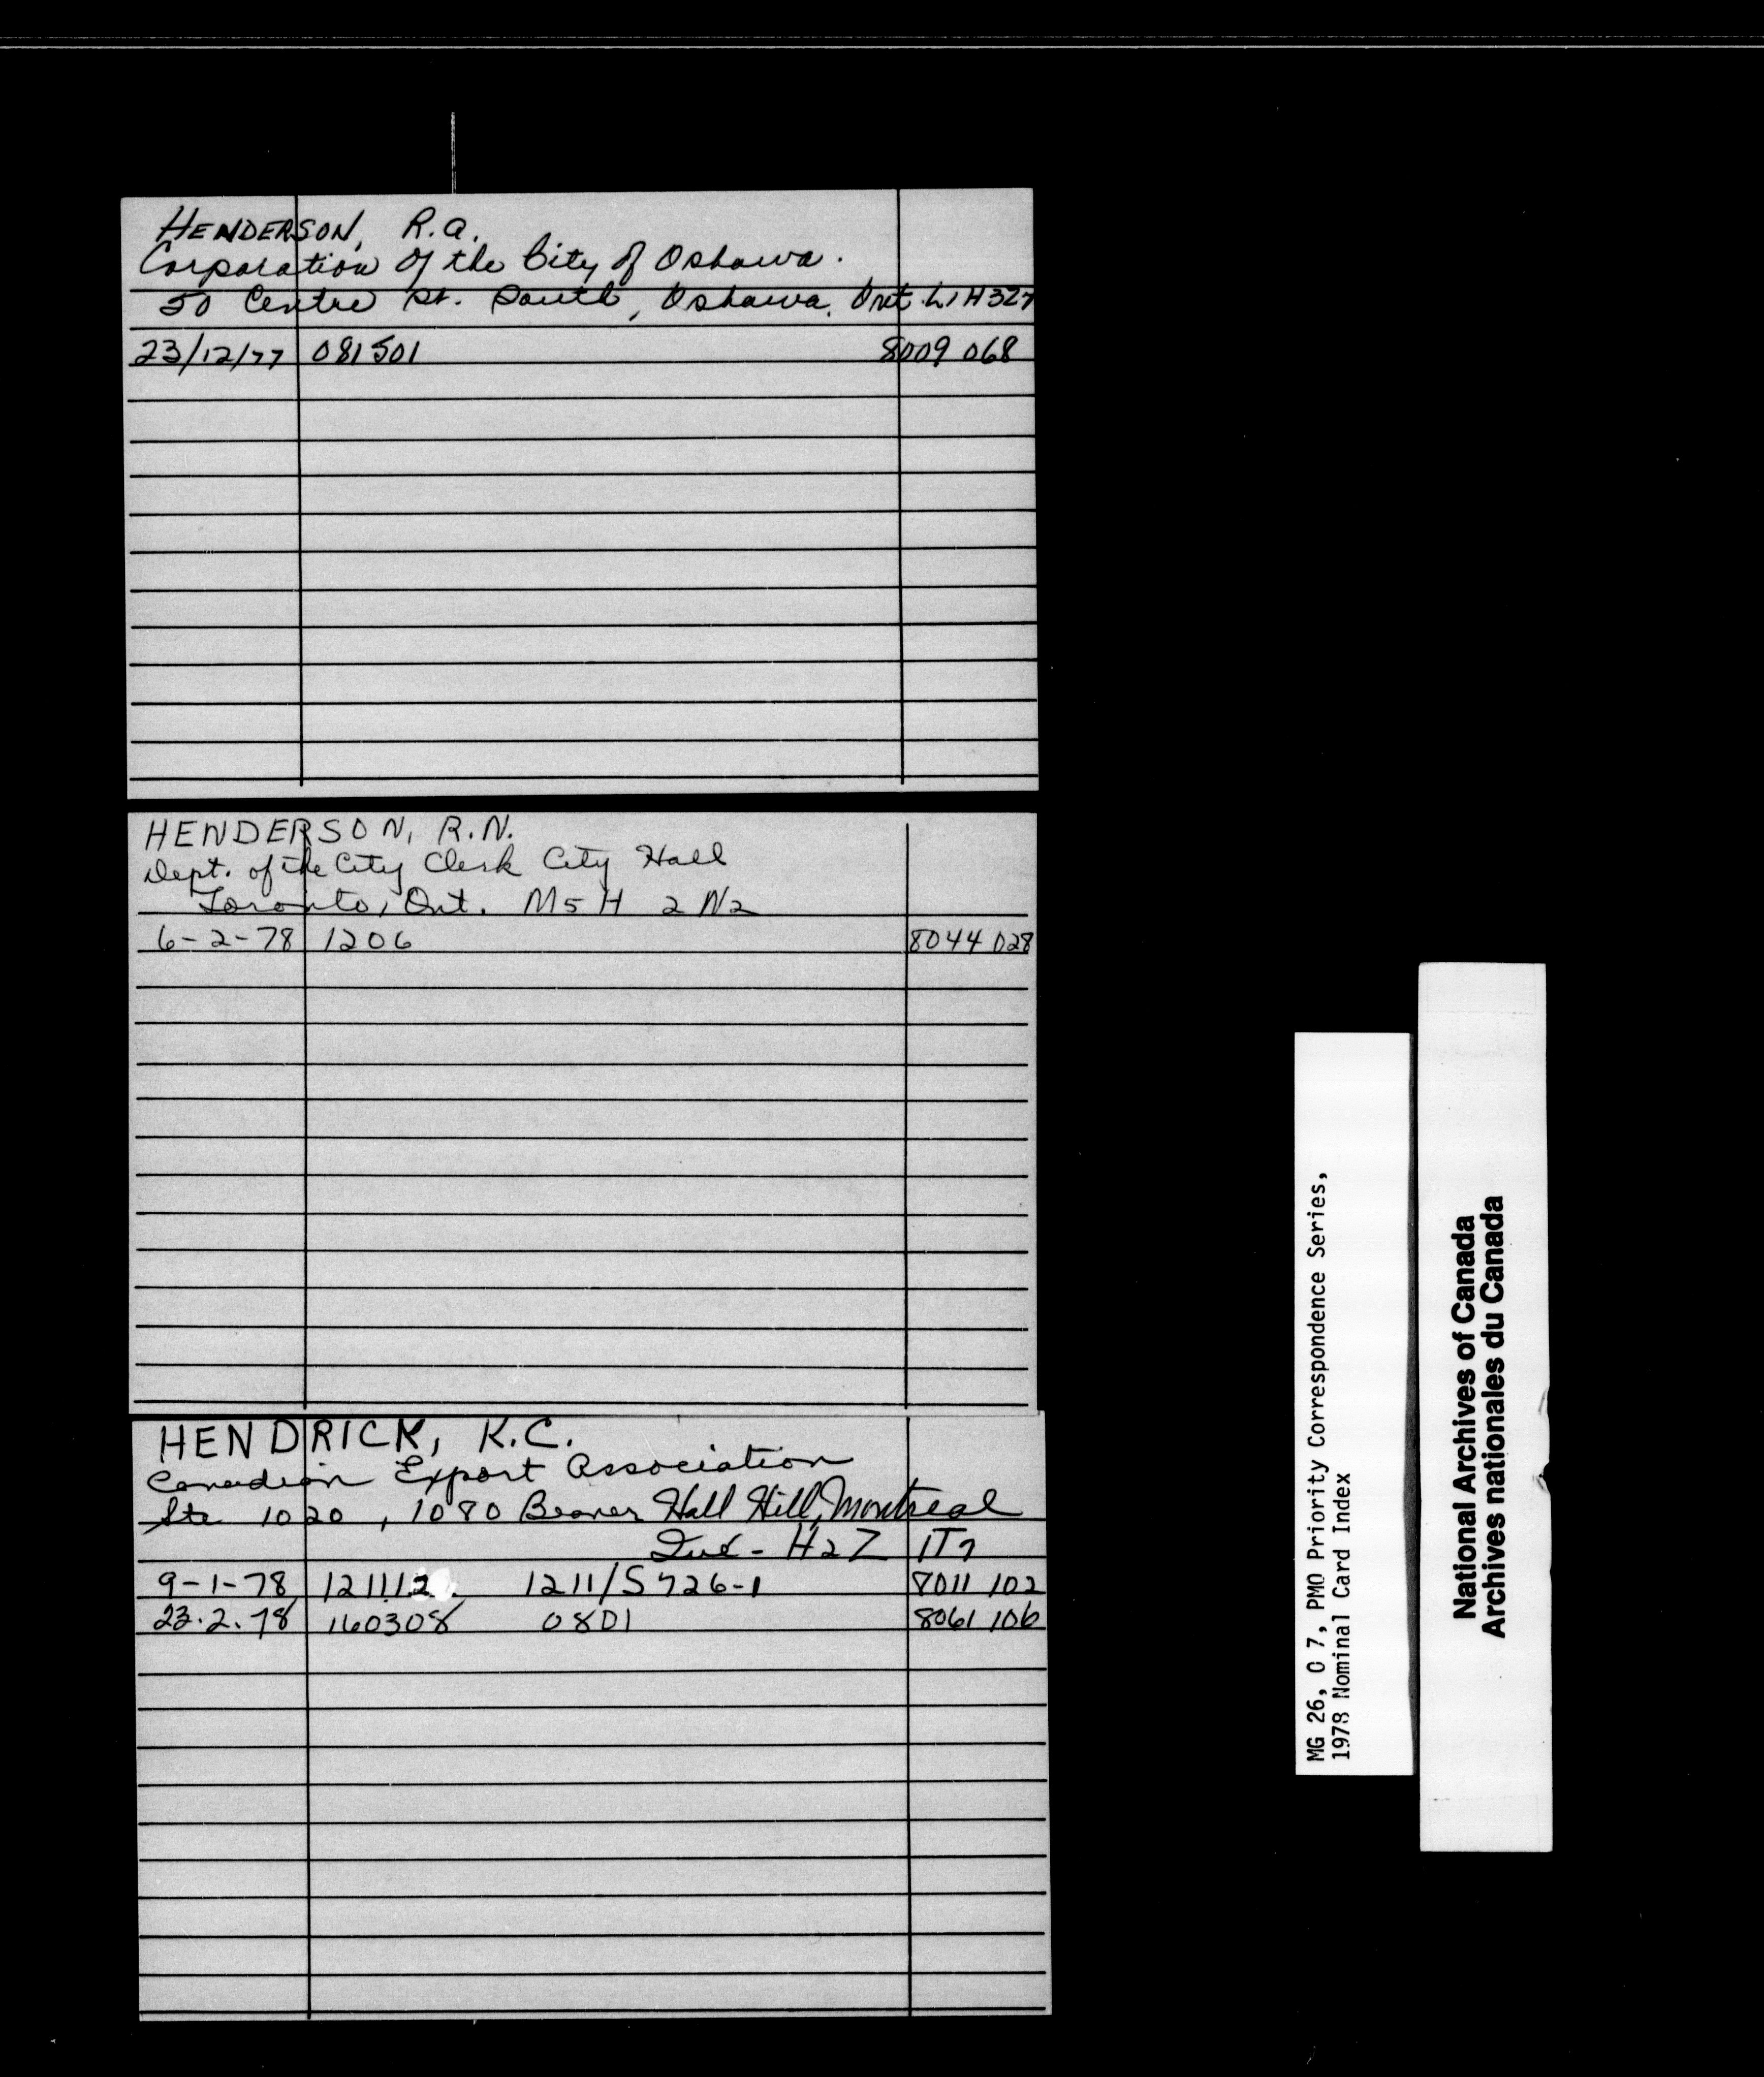 HENDERSON, R.A.
Corporation of the City of Oshawa.
50 Centre St. South, Oshawa, Ont. L1H 3Z7
23/12/77 081501 8009 068
HENDERSON, R.N.
Dept. of the City Clerk City Hall
Toronto, Ont. M5H 2N2
6-2-78 1206 8044 028
HENDRICK, K.C.
Canadian Export Association
Ste 1020, 1080 Beaver Hall Hill, Montreal
Que - H2Z 1T7
9-1-78 121112 1211/S726-1 8011 102
23.2.78 160308 0801 8061 106
MG 26, O 7, PMO Priority Correspondence Series,
1978 Nominal Card Index
National Archives of Canada
Archives nationales du Canada